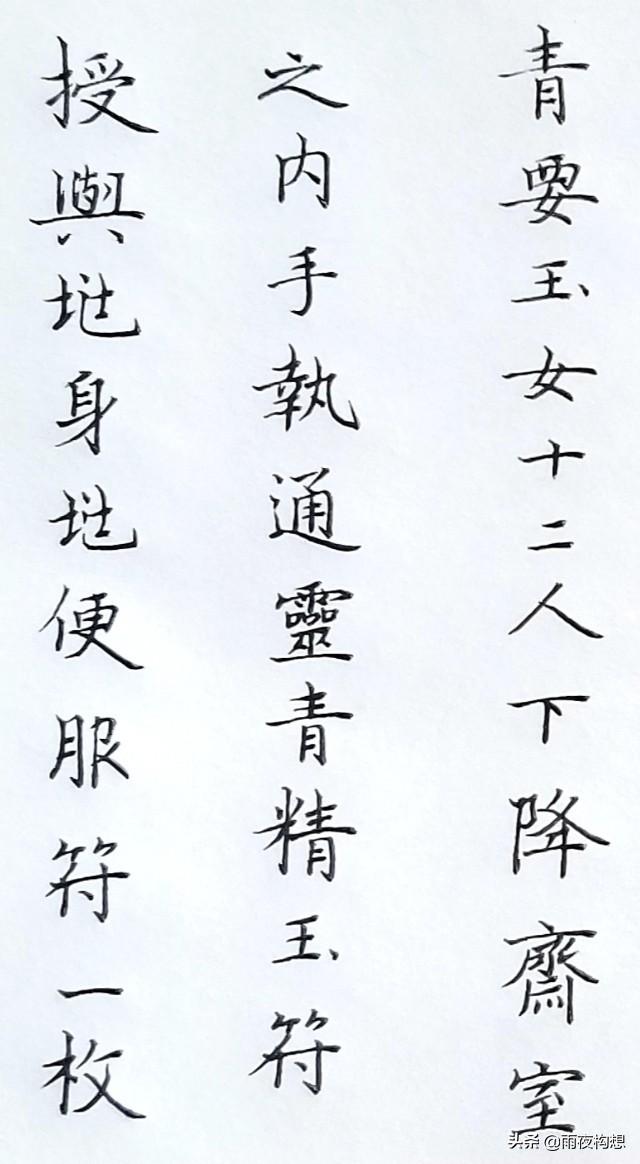 青要玉女十二人下降齋室
之内手執通靈青精玉符
授與身便服符一枚
头条 @雨夜构想